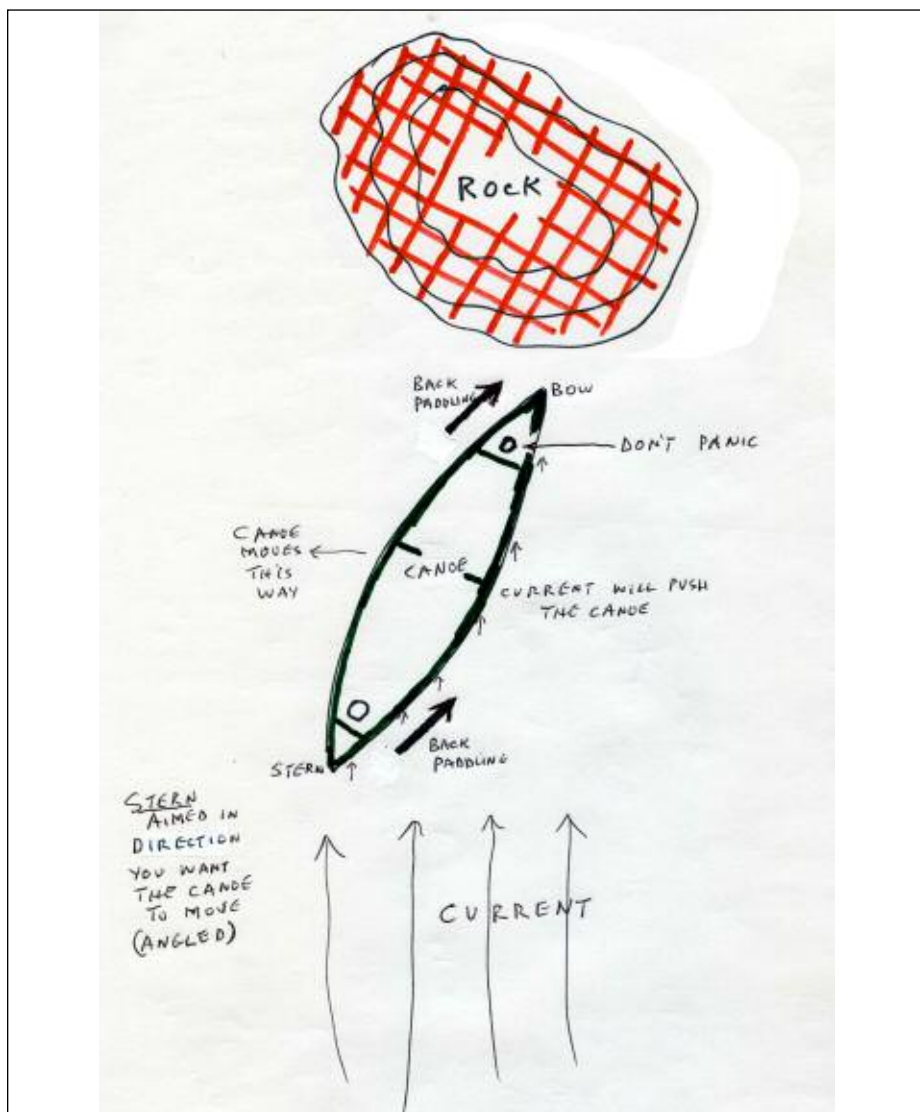 ROCK
BACK
PADDLING
BOW
DON'T PANIC
CANOE
MOVES
THIS
WAY
CANOE
CURRENT WILL PUSH
THE CANOE
BACK
PADDLING
STERN
STERN
AIMED IN
DIRECTION
YOU WANT
THE CANOE
TO MOVE
(ANGLED)
CURRENT